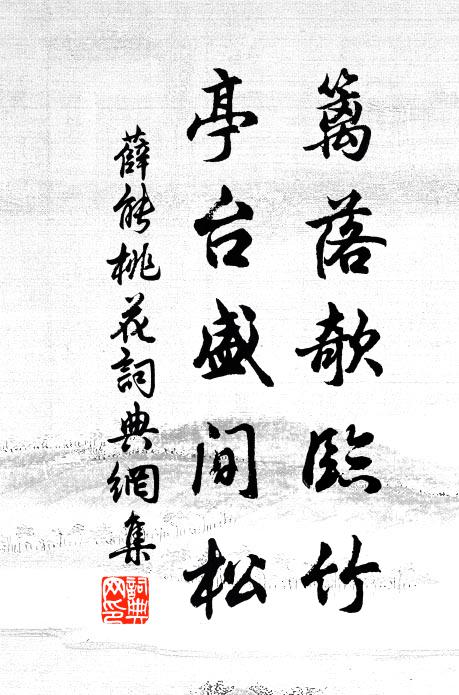 籬落欹臨竹
亭台盛間松
薛能桃花詞典網集
詞典网印